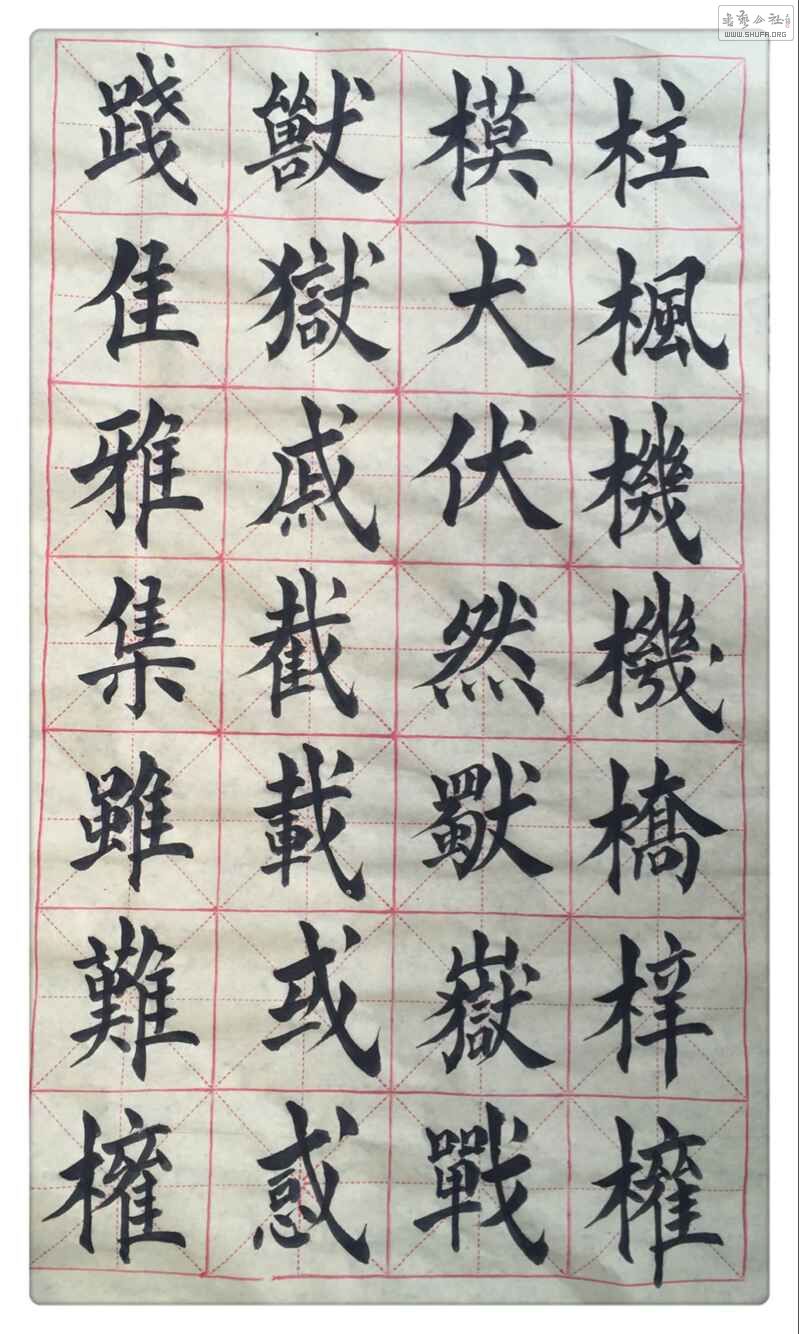 柱楓機機橋梓
模犬伏然嶽戰
獸獄戚截載或惑
踐佳雅集雖難
公社
WWW.SHUFA.ORG